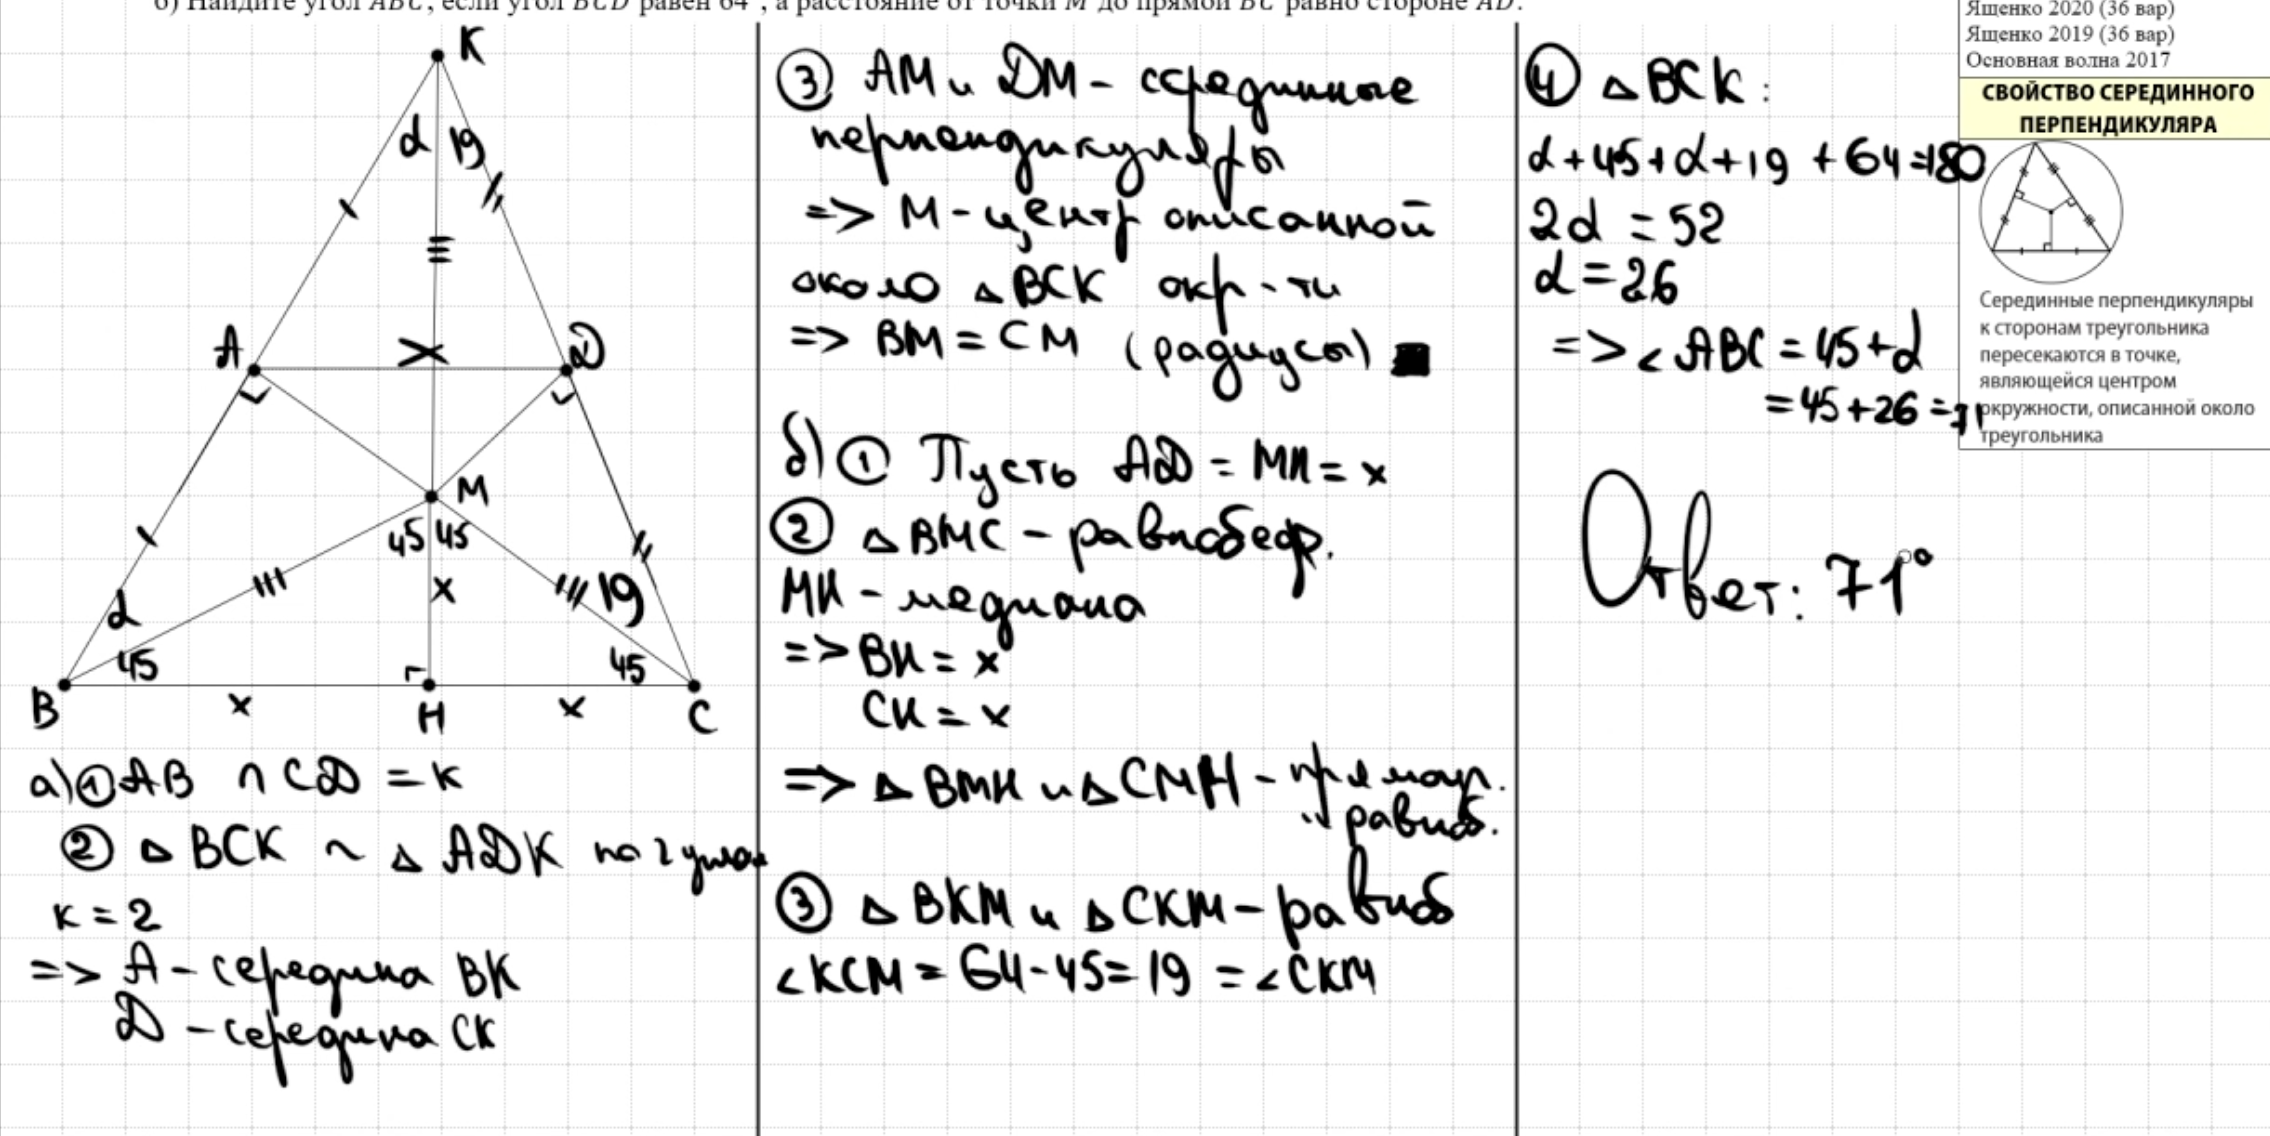 б) Найдите угол ABC, если угол BCD равен 64°, а расстояние от точки M до прямой BC равно стороне AD.
K
α 19
A
D
M
45 45
x
19
α
45
45
B
x
H
x
C
а) ① AB ∩ CD = K
② △ BCK ~ △ ADK по 2 углам
k = 2
=> A - середина BK
D - середина CK
③ AM и DM - серединные
перпендикуляры
=> M - центр описанной
около △ BCK окр-ти
=> BM = CM (радиусы) ■
б) ① Пусть AD = MH = x
② △ BMC - равнобедр.
MH - медиана
=> BH = x
CH = x
=> △ BMH и △ CMH - прямоуг.
и равноб.
③ △ BKM и △ CKM - равноб
∠KCM = 64-45 = 19 = ∠CKM
④ △ BCK:
α + 45 + α + 19 + 64 = 180
2α = 52
α = 26
=> ∠ABC = 45 + α
= 45 + 26 = 71
Ответ: 71°
Ященко 2020 (36 вар)
Ященко 2019 (36 вар)
Основная волна 2017
СВОЙСТВО СЕРЕДИННОГО
ПЕРПЕНДИКУЛЯРА
Серединные перпендикуляры
к сторонам треугольника
пересекаются в точке,
являющейся центром
окружности, описанной около
треугольника